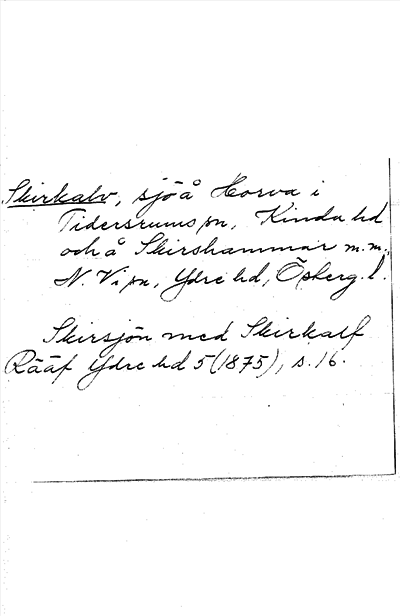 Skirkalv, sjö å Horva i
Tidersrums sn, Kinda hd
och å Skirshammar m.m.,
N. Vi sn, Ydre hd, Österg. l.
Skirsjön med Skirkalf
Rääf Ydre hd 5 (1875), s. 16.